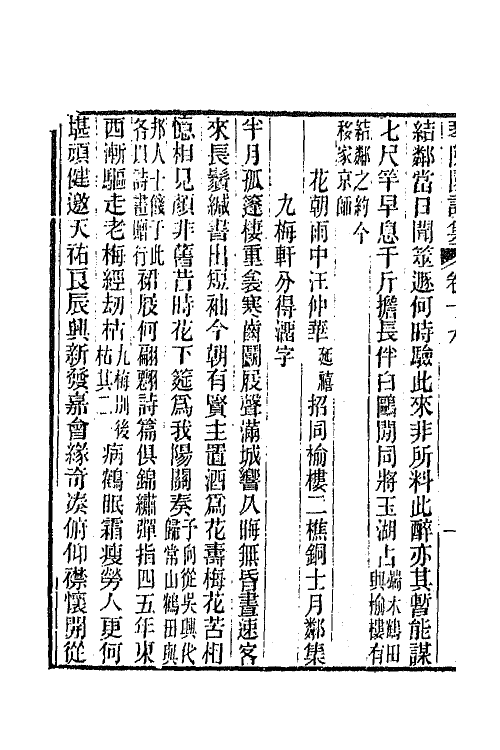 結鄰當日聞筮遯何時驗此來非所料此醉亦其暫能謀
七尺竿早息千斤擔長伴白鷗閒同將玉湖占端木鶴田與榆樓有
結鄰之約今移家京師
花朝雨中汪仲華延禧招同榆樓二樵銅士月鄰集
九梅軒分得酒字
半月孤篷棲重裘寒齒鬬屐聲滿城響久晦無昏晝速客
來長鬚緘書出短袖今朝有賢主置酒爲花壽梅花苦相
憶相見顏非舊昔時花下筵爲我陽關奏予向從吳興代歸常山鶴田與
邦人士餞于此各以詩畫贈行裙屐何翩翾詩篇俱錦繡彈指四五年東
西漸驅走老梅經劫枯九梅別後枯其二病鶴眠霜瘦勞人更何
堪頭健邀天祐良辰興新發嘉會緣奇湊俯仰襟懷開從